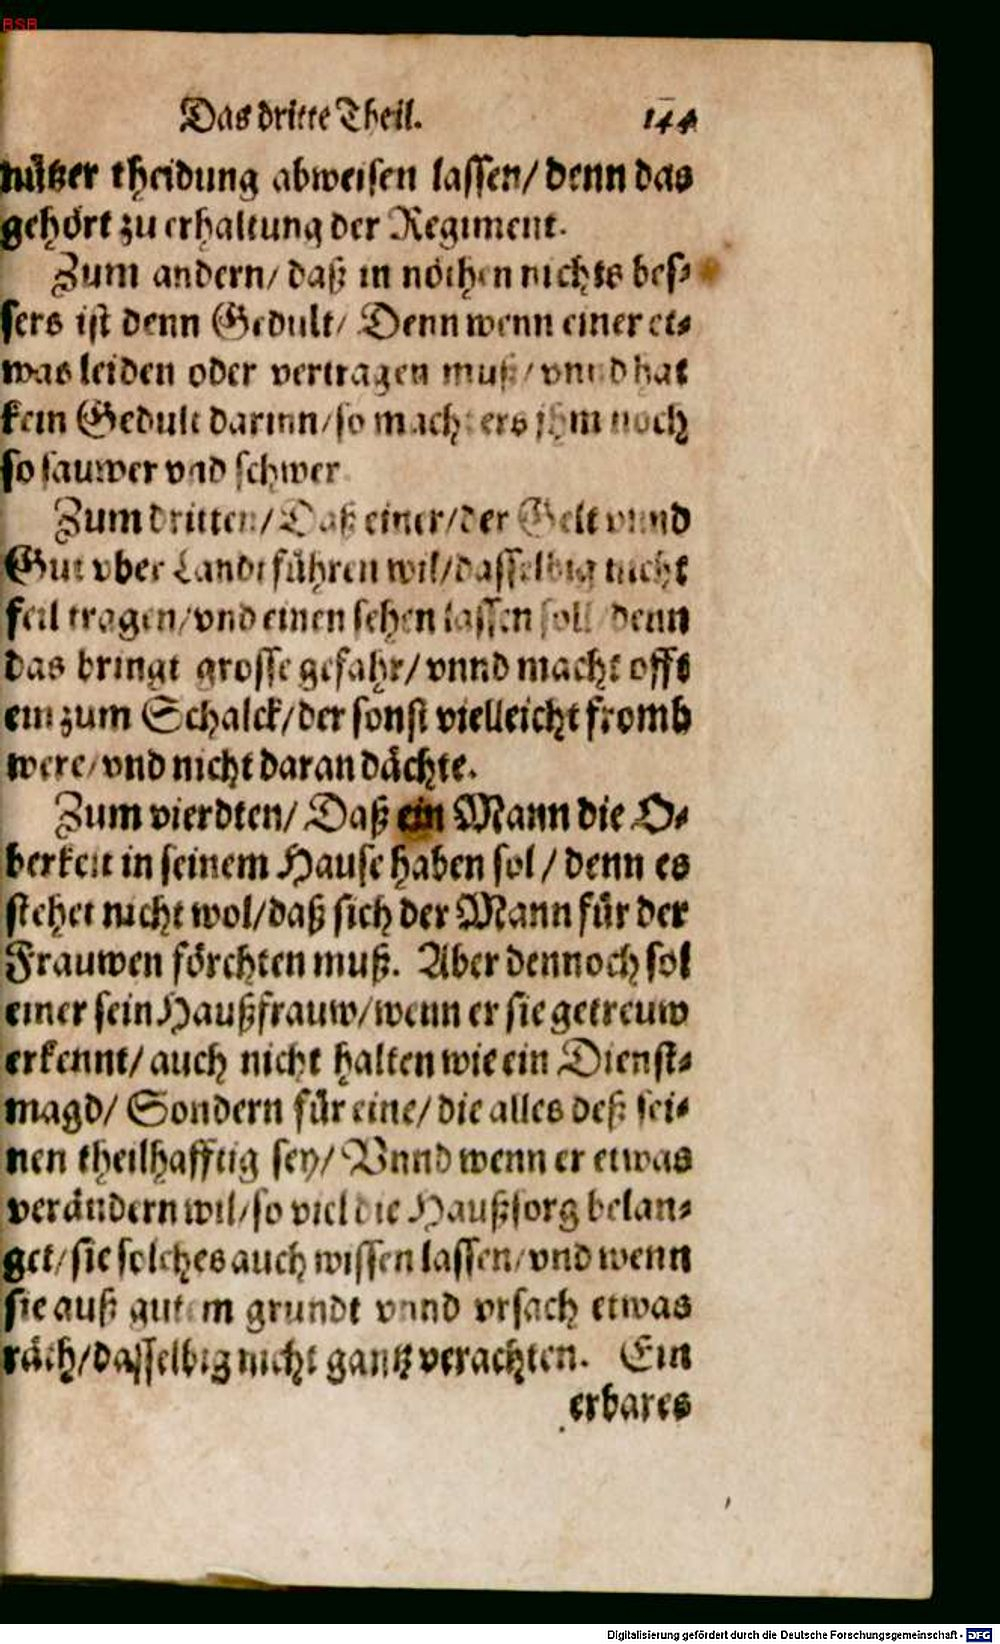 BSB
Das dritte Theil. 144
nützer theidung abweisen lassen/ denn das
gehört zu erhaltung der Regiment.
Zum andern/ daß in nöthen nichts bes-
sers ist denn Gedult/ Denn wenn einer et-
was leiden oder vertragen muß/ vnnd hat
kein Gedult darinn/ so macht ers jhm noch
so sauwer vnd schwer.
Zum dritten/ Daß einer/ der Gelt vnnd
Gut vber Landt führen wil/ dasselbig nicht
feil tragen/ vnd einen sehen lassen soll/ denn
das bringt grosse gefahr/ vnnd macht offt
ein zum Schalck/ der sonst vielleicht fromb
were/ vnd nicht daran dächte.
Zum vierdten/ Daß ein Mann die O-
berkeit in seinem Hause haben sol/ denn es
stehet nicht wol/ daß sich der Mann für der
Frauwen förchten muß. Aber dennoch sol
einer sein Haußfrauw/ wenn er sie getreuw
erkennt/ auch nicht halten wie ein Dienst-
magd/ Sondern für eine/ die alles deß sei-
nen theilhafftig sey/ Vnnd wenn er etwas
verändern wil/ so viel die Haußsorg belan-
get/ sie solches auch wissen lassen/ vnd wenn
sie auß gutem grundt vnnd vrsach etwas
räth/ dasselbig nicht gantz verachten. Ein
erbares
Digitalisierung gefördert durch die Deutsche Forschungsgemeinschaft - DFG